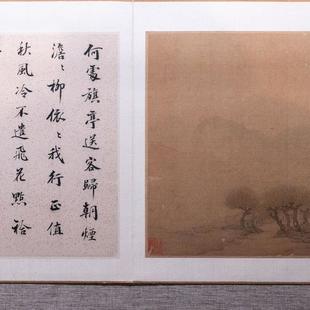 何處旗亭送客歸朝煙
澹〻柳依〻我行正值
秋風冷不遣飛花點袷